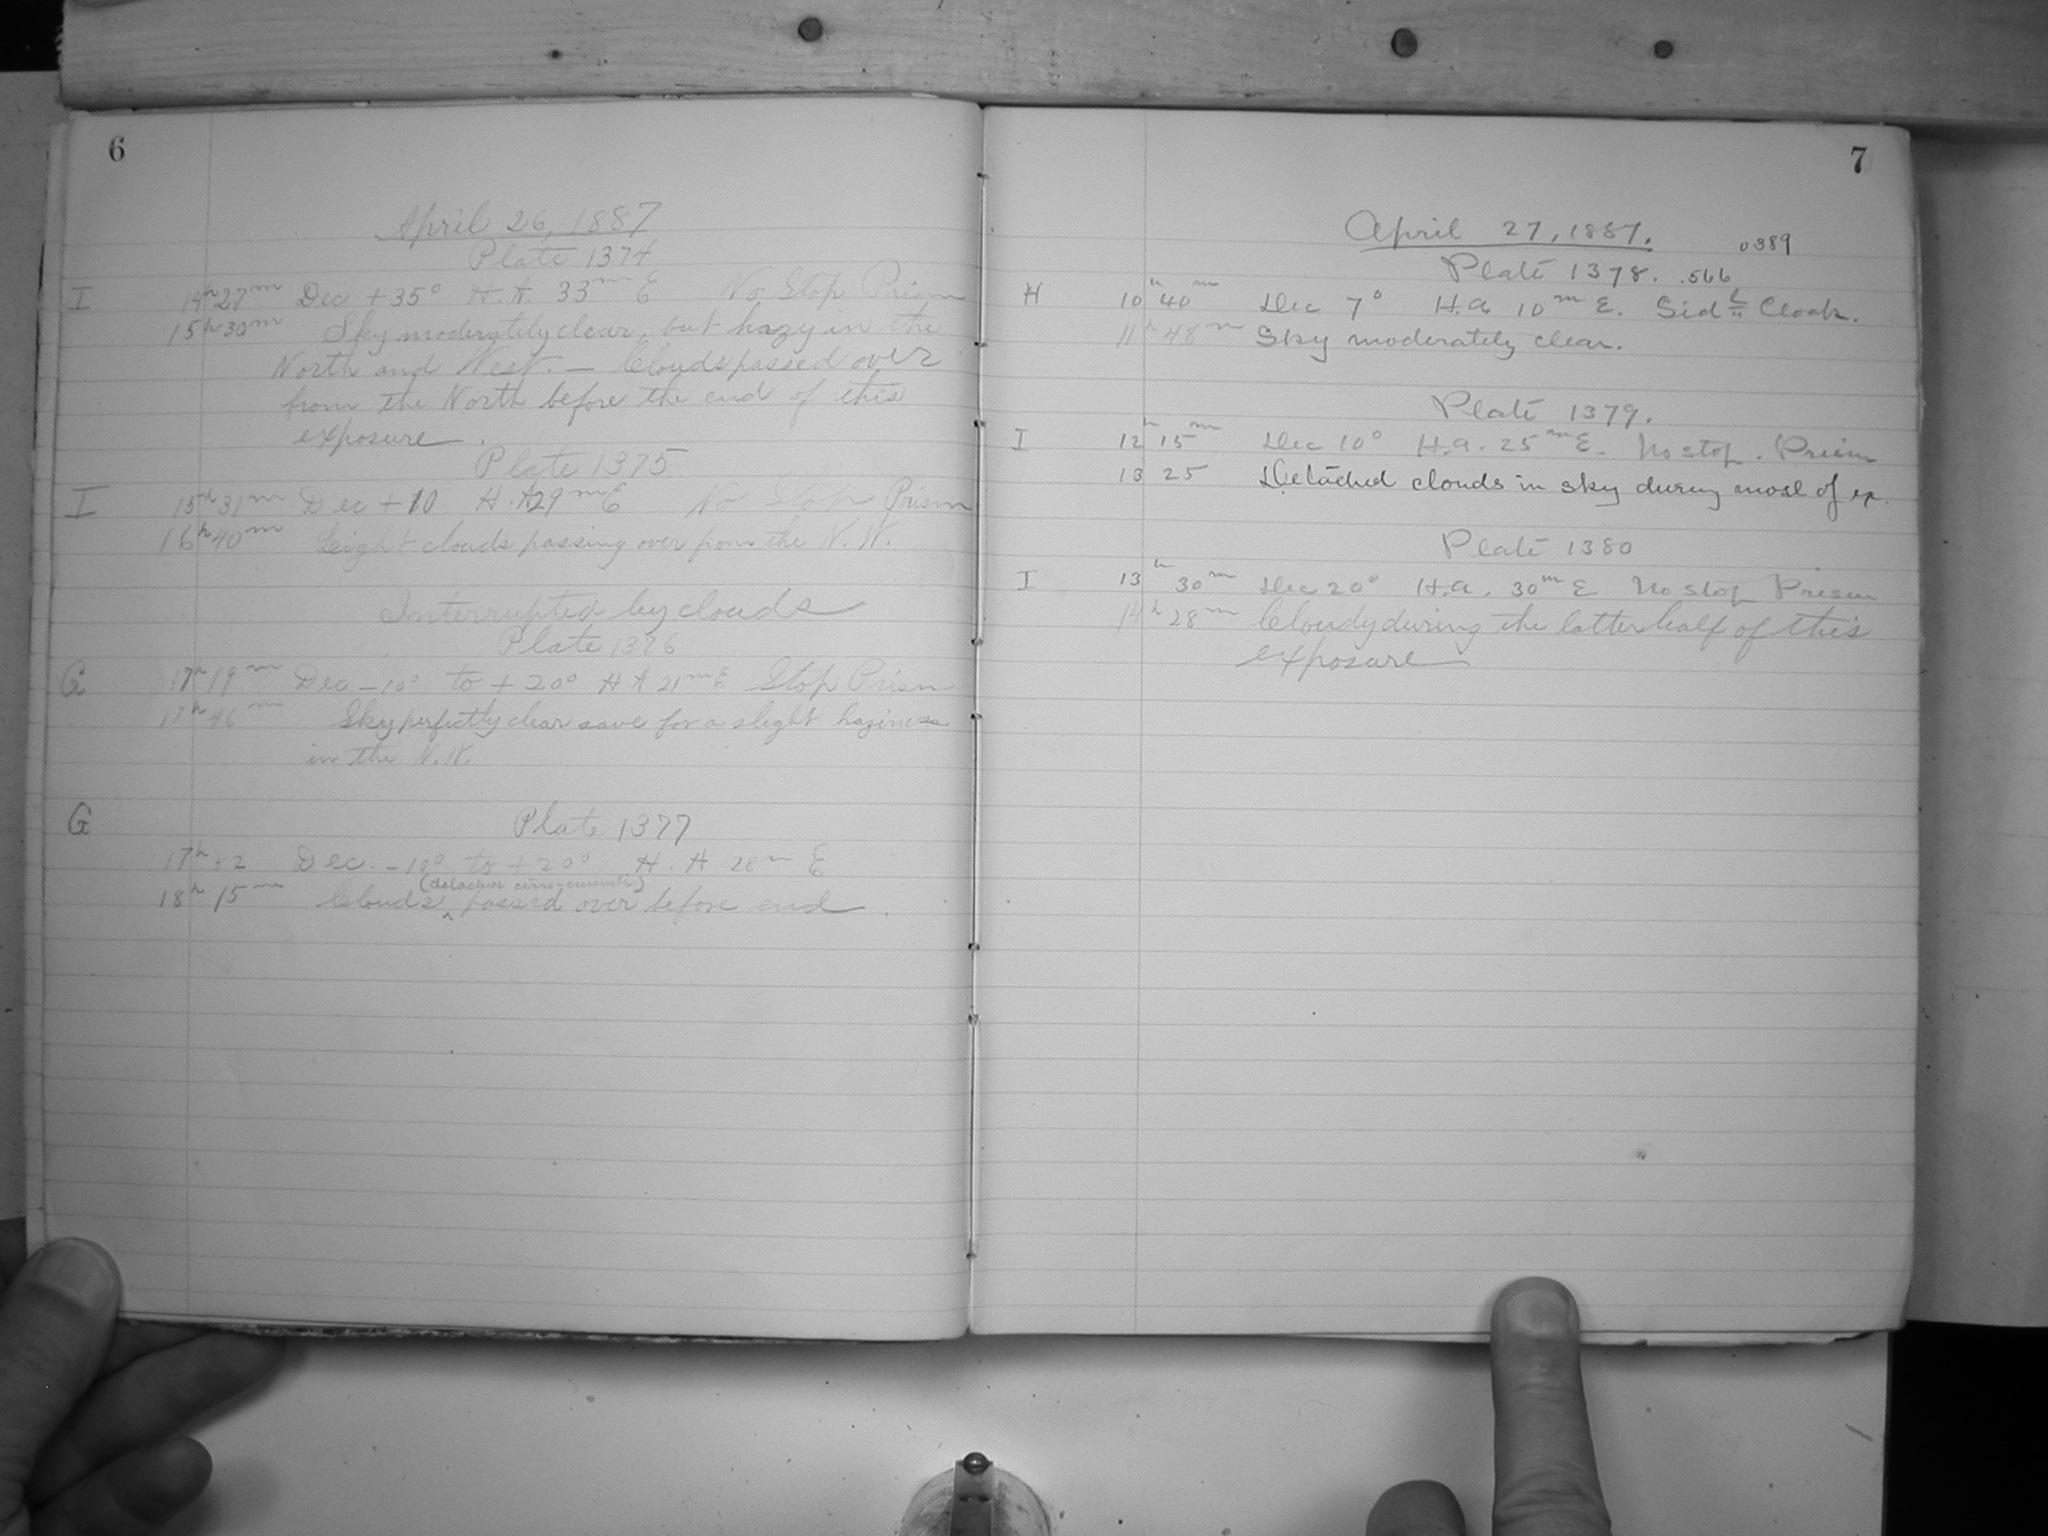 6
April 26, 1887
Plate 1374
I 14h27m Dec +35° H.A. 33m E No Stop Prism
15h30m Sky moderately clear, but hazy in the
North and West. — Clouds passed over
from the North before the end of this
exposure.
Plate 1375
I 15h31m Dec +10 H.A 29m E No Stop Prism
16h40m Light clouds passing over from the N.W.
Interrupted by clouds
Plate 1376
G 17h19m Dec -10° to +20° H A 21m E Stop Prism
17h46m Sky perfectly clear save for a slight haziness
in the N.W.
G Plate 1377
17h52 Dec. -10° to +20° H.A 28m E
(detached cirro-cumuli)
18h15m Clouds ^ passed over before end.
7
April 27, 1887. 0389
Plate 1378. .566
H 10h40m Dec 7° H.a 10m E. Sidl Clock.
11h48m Sky moderately clear.
Plate 1379.
I 12h15m Dec 10° H.a. 25m E. No stop. Prism
13 25 Detached clouds in sky during most of ex.
Plate 1380
I 13h30m Dec 20° H.a. 30m E No stop Prism
14h28m Cloudy during the latter half of this
exposure